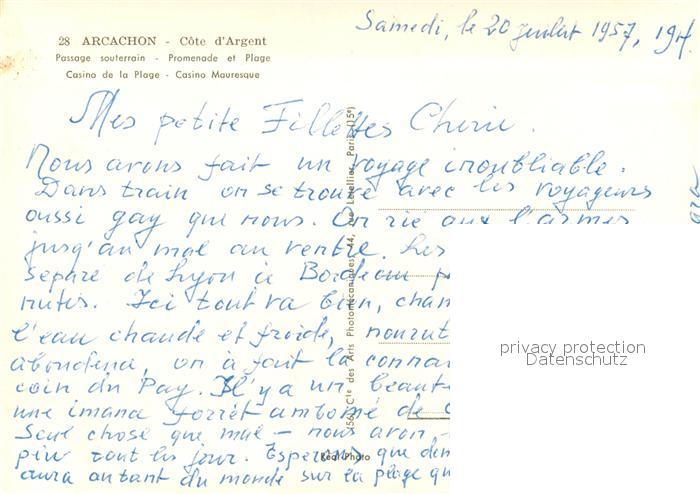 28 ARCACHON - Côte d'Argent
Passage souterrain - Promenade et Plage
Casino de la Plage - Casino Mauresque
Samedi, le 20 Juillet 1957, 19H.
Mes petite Fillettes Cherie.
Nous avons fait un voyage inoubliable.
Dans train on se trouve avec les voyageurs
oussi gay que nous. On rie aux l'armes
jusq'au mal au ventre. Les
separe de Lyon à Bordeau p
nutes. Ici tout va bien, cham
l'eau chaude et froide, nourut
abondena, on à fait la connai
coin du Pay. Il y a un beaut
une imana forrét ambomé de
Seul chose que mal - nous avon
piu tout les jour. Esperons que dem
aura autant du monde sur la plage qu
Cie des Arts Photomécaniques, 44, rue Letellier, Paris (15e)
Réal-Photo
privacy protection
Datenschutz